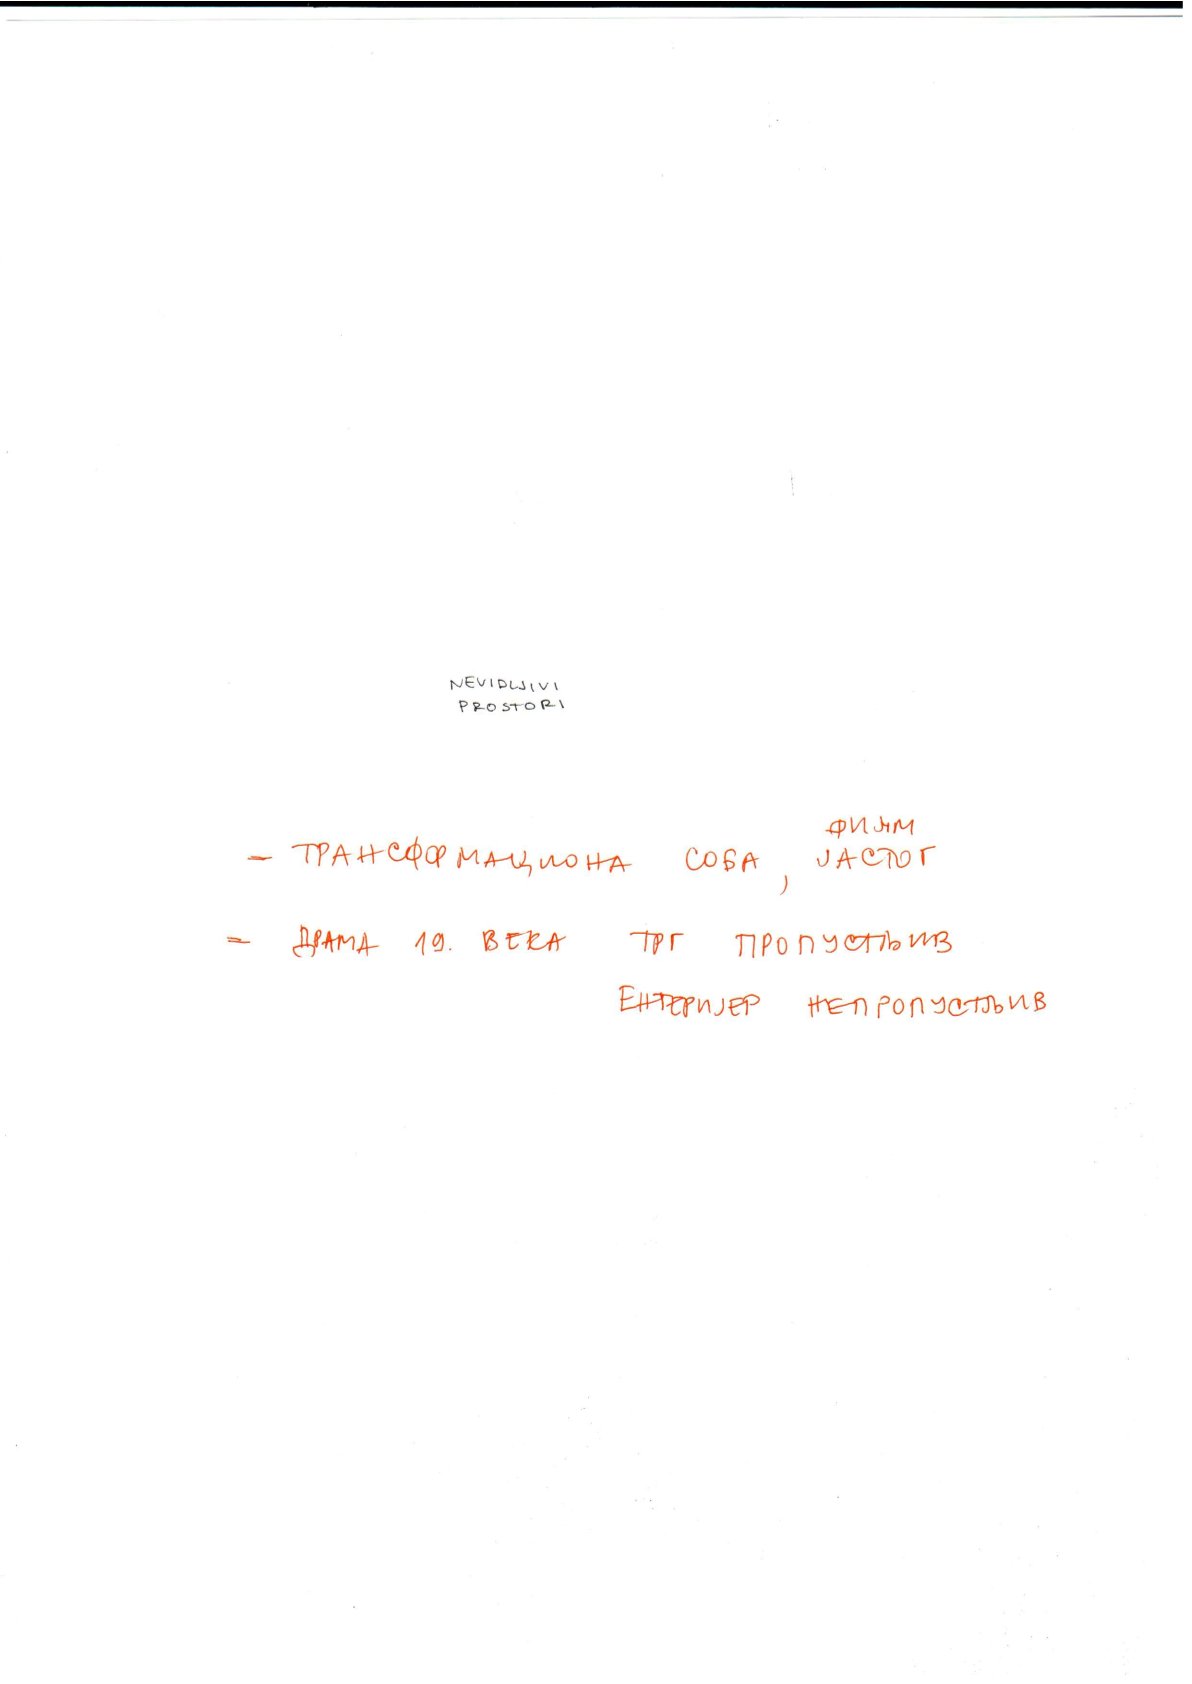 NEVIDLJIVI
PROSTORI
ФИЛМ
– ТРАНСФОРМАЦИОНА СОБА, ЈАСТОГ
– ДРАМА 19. ВЕКА ТРГ ПРОПУСТЉИВ
ЕНТЕРИЈЕР НЕПРОПУСТЉИВ